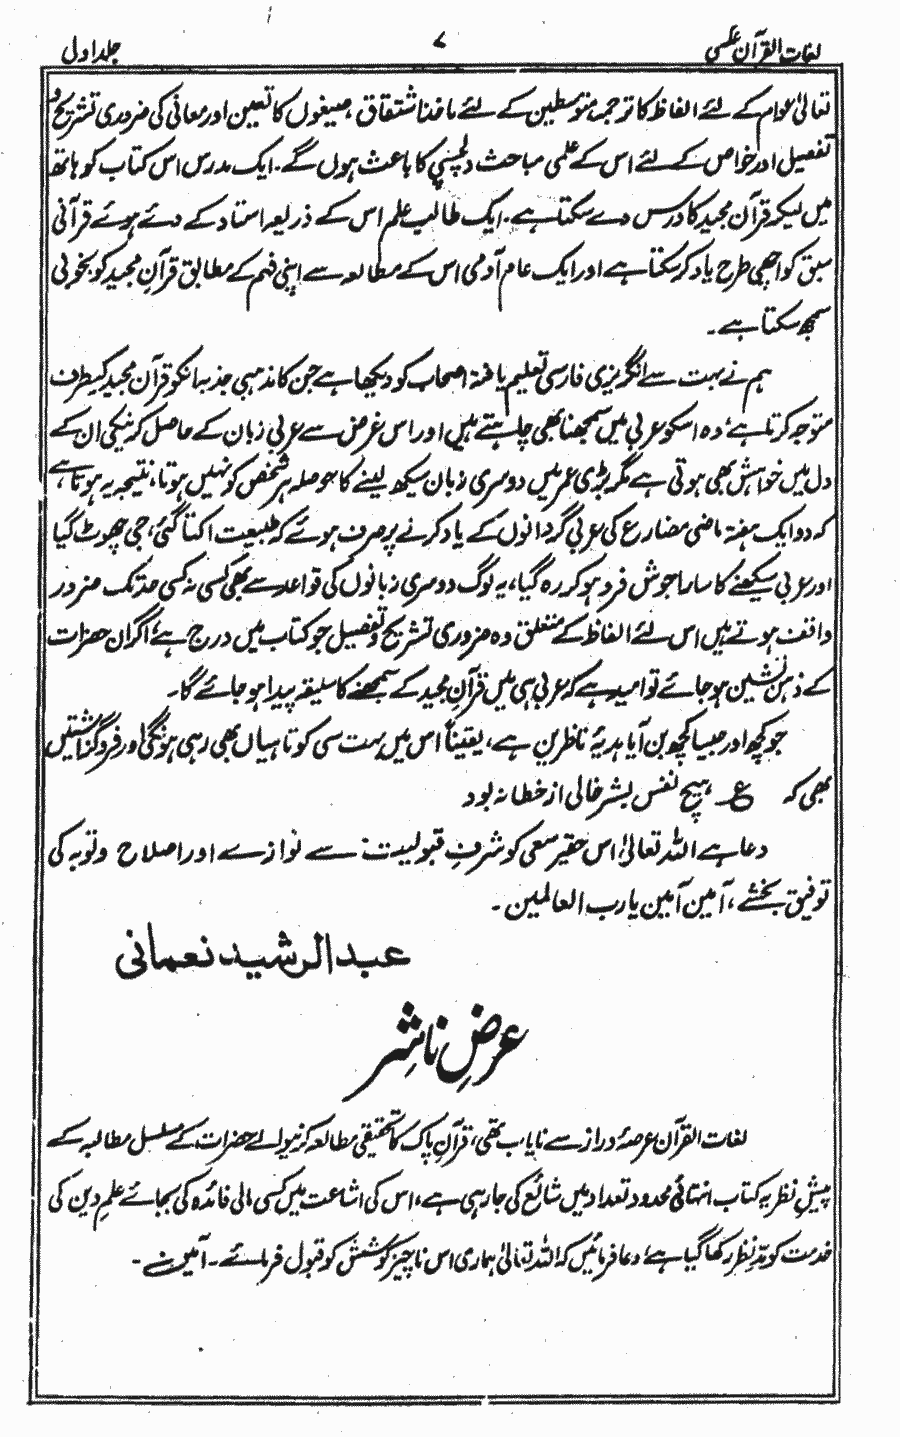 لغات القرآن عکسی ۷ جلد اول
تعالیٰ عوام کے لئے الفاظ کا ترجمہ، متوسطین کے لئے ماخذ اشتقاق، صیغوں کا تعین اور معانی کی ضروری تشریح و
تفصیل اور خواص کے لئے اس کے علمی مباحث دلچسپی کا باعث ہوں گے۔ ایک مدرس اس کتاب کو ہاتھ
میں لیکر قرآن مجید کا درس دے سکتا ہے۔ ایک طالب علم اس کے ذریعہ استاد کے دئے ہوئے قرآنی
سبق کو اچھی طرح یاد کر سکتا ہے اور ایک عام آدمی اس کے مطالعہ سے اپنی فہم کے مطابق قرآنِ مجید کو بخوبی
سمجھ سکتا ہے۔
ہم نے بہت سے انگریزی فارسی تعلیم یافتہ اصحاب کو دیکھا ہے جن کا مذہبی جذبہ انکو قرآن مجید کیطرف
متوجہ کرتا ہے، وہ اسکو عربی میں سمجھنا بھی چاہتے ہیں اور اس غرض سے عربی زبان کے حاصل کرنیکی ان کے
دل میں خواہش بھی ہوتی ہے مگر بڑی عمر میں دوسری زبان سیکھ لینے کا حوصلہ ہر شخص کو نہیں ہوتا، نتیجہ یہ ہوتا ہے
کہ دو ایک ہفتہ ماضی مضارع کی عربی گردانوں کے یاد کرنے پر صرف ہوئے کہ طبیعت اکتا گئی، جی چھوٹ گیا
اور عربی سیکھنے کا سارا جوش فرد ہو کر رہ گیا، یہ لوگ دوسری زبانوں کی قواعد سے بھی کسی نہ کسی حد تک ضرور
واقف ہوتے ہیں اس لئے الفاظ کے متعلق وہ ضروری تشریح و تفصیل جو کتاب میں درج ہے، اگر ان حضرات
کے ذہن نشین ہو جائے تو امید ہے کہ عربی ہی میں قرآنِ مجید کے سمجھنے کا سلیقہ پیدا ہو جائے گا۔
جو کچھ اور جیسا کچھ بن آیا ہدیۂ ناظرین ہے، یقیناً اس میں بہت سی کوتاہیاں بھی رہی ہونگی اور فروگذاشتیں
بھی کہ ع ہیچ نفس بشر خالی از خطا نہ بود
دعا ہے اللہ تعالیٰ اس حقیر سعی کو شرفِ قبولیت سے نوازے اور اصلاح و توبہ کی
توفیق بخشے، آمین آمین یا رب العالمین۔
عبدالرشید نعمانی
عرضِ ناشر
لغات القرآن عرصۂ دراز سے نایاب تھی، قرآنِ پاک کا تحقیقی مطالعہ کرنیوالے حضرات کے مسلسل مطالبہ کے
پیشِ نظر یہ کتاب انتہائی محدود تعداد میں شائع کی جا رہی ہے، اس کی اشاعت میں کسی مالی فائدہ کی بجائے علمِ دین کی
خدمت کو مدِّ نظر رکھا گیا ہے، دعا فرمائیں کہ اللہ تعالیٰ ہماری اس ناچیز کوشش کو قبول فرمائے۔ آمین۔